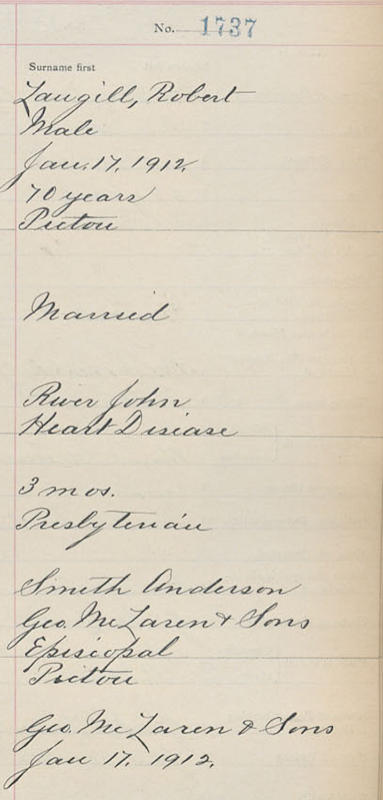 No. 1737
Surname first
Langill, Robert
Male
Jan. 17, 1912.
70 years
Pictou
Married
River John
Heart Disease
3 mos.
Presbyterian
Smith Anderson
Geo. McLaren & Sons
Episcopal
Pictou
Geo. McLaren & Sons
Jan 17. 1912.